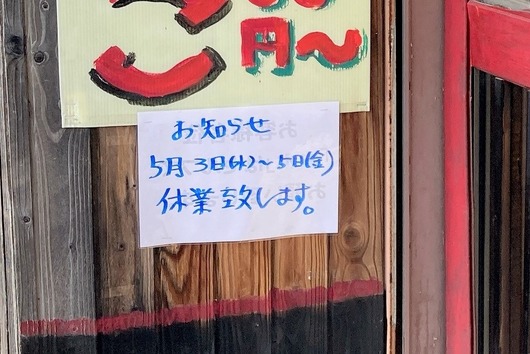 円〜
お知らせ
5月3日(水)〜5日(金)
休業致します。